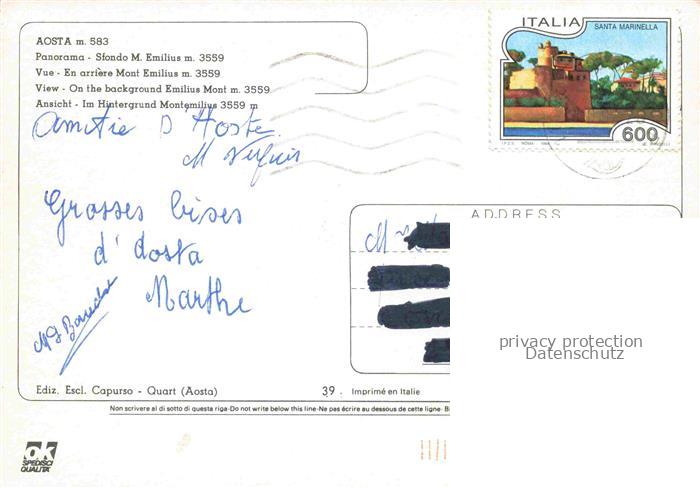 AOSTA m. 583
Panorama - Sfondo M. Emilius m. 3559
Vue - En arrière Mont Emilius m. 3559
View - On the background Emilius Mont m. 3559
Ansicht - Im Hintergrund Montemilius 3559 m
ITALIA
SANTA MARINELLA
600
I.P.Z.S. ROMA
Amitie D'Aoste
M
Grosses bises
d'Aosta
Marthe
ADDRESS
M
privacy protection
Datenschutz
Ediz. Escl. Capurso - Quart (Aosta)
39 Imprimé en Italie
Non scrivere al di sotto di questa riga-Do not write below this line-Ne pas écrire au dessous de cette ligne-
ok
SPEDISCI
QUALITA'